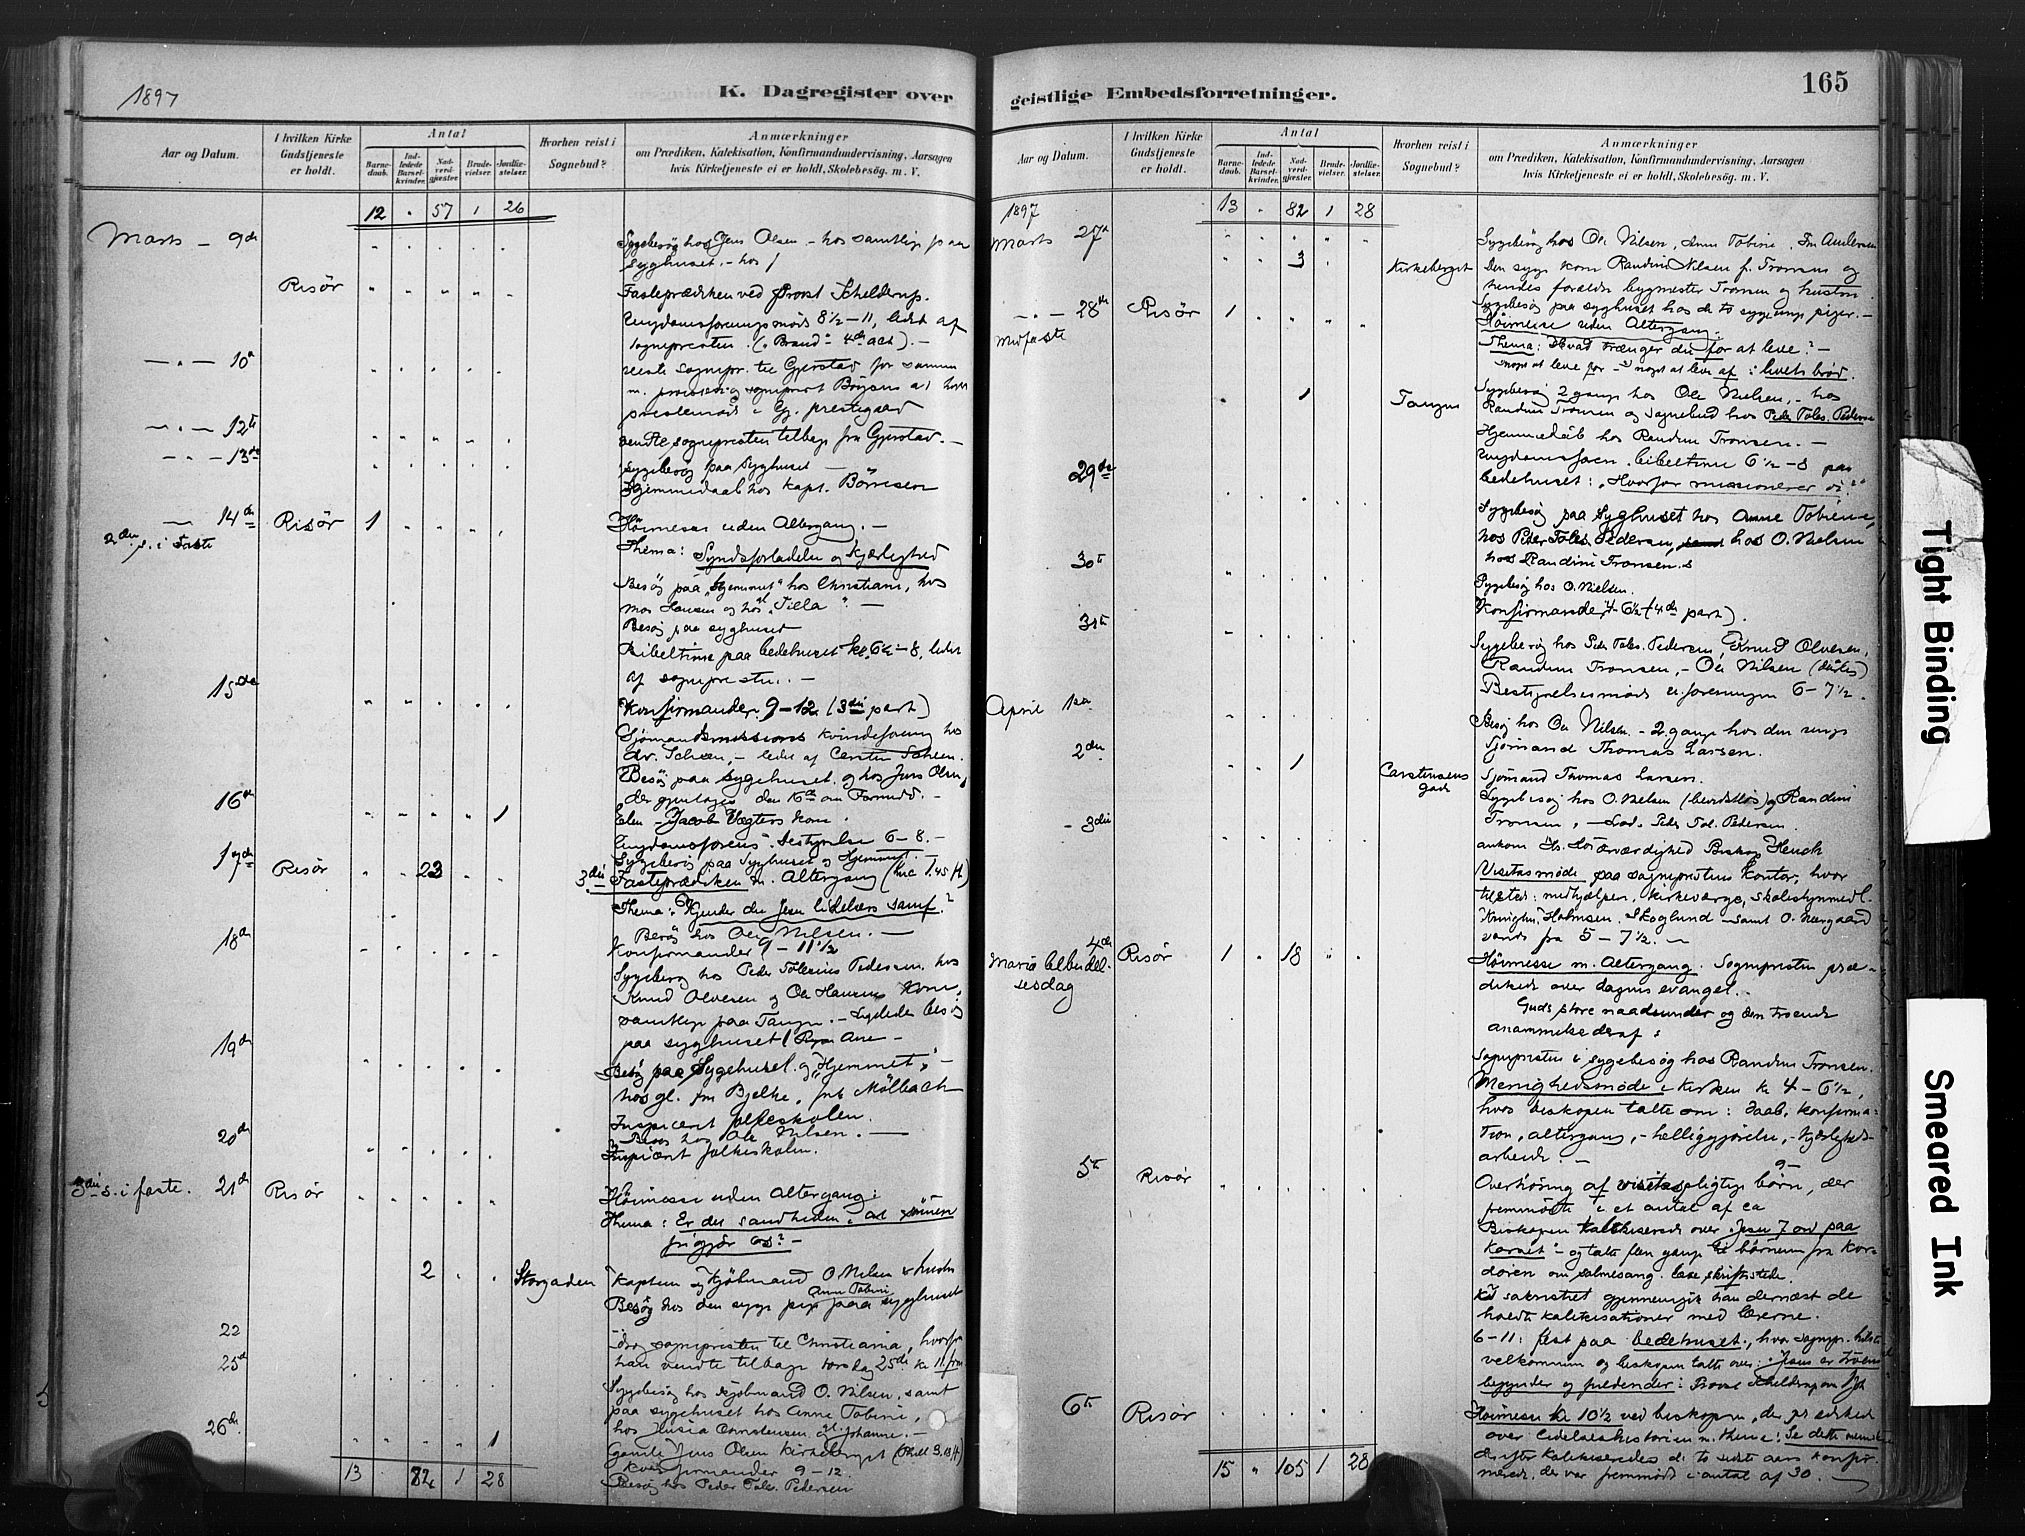 1897
K. Dagregister over
Aar og Datum.
I hvilken Kirke Gudstjeneste er holdt.
Antal
Barnedaab.
Indledede Barselkvinder.
Nadverdgjæster.
Brudevielser.
Jordfæstelser.
Hvorhen reist i Sognebud?
Anmærkninger
om Prædiken, Katekisation, Konfirmandundervisning, Aarsagen
hvis Kirketjeneste ei er holdt, Skolebesög. m. V.
12 " 57 1 26
Marts - 9de Sygebesög hos Jens Olsen - hos samtlige paa
syghuset. - hos
Risör Fasteprædiken ved Provst Schelderup.
Ungdomsforeningsmöde 8 1/2 - 11, ledet af
sognepresten. ("Brand" 4de act). -
— " — 10de reiste sognepr. til Gjerstad for sammen
prestemöde i Gj. prestegaard
— " — 12te vendte sognepresten tilbage fra Gjerstad. -
— " — 13de Sygebesög paa Syghuset -
Hjemmedaab hos Kapt. Börresen
— 14de Risör 1 Höimesse uden Altergang. -
2den s. i Faste Thema: Syndsforladelse og Kjærlighed
Besög paa "Hjemmet" hos Christiane, hos
Mor Hansen og hos "Tilla". -
Besög paa syghuset
Bibeltime paa bedehuset kl. 6 1/2 - 8, ledet
af sognepresten. -
15de Konfirmander 9 - 12 (3die part)
Sjömandsmissions kvindeforening hos
Besög paa sygehuset og hos Jens Olsen,
16de 1 Elen - Jacob Vægters kone.
Ungdomsforens. bestyrelse 6 - 8. -
Sygebesög paa Syghuset og Hjemmet.
17de Risör 23 3die Fasteprædiken m. Altergang
Thema: Kjender du Jesu lidelsers samf.?
Besög hos Ole Nilsen. -
18de Konfirmander 9 - 11 1/2
Sygebesög hos Peder Tobias Pedersen, hos
Knud Olvesen og Ole Hansens Kone,
samtlige paa Tangen. - Ligeledes besög
paa syghuset
19de Besög paa Sygehuset og "Hjemmet", -
hos gl. fru Bjelke, frk Mölbach
Inspiceret folkeskolen.
20de Besög hos Ole Nilsen. -
Inspiceret folkeskolen.
3die s. i faste. 21de Risör Höimesse uden Altergang:
Thema: Er det sandheden, at sönnen
frigjör os? -
2 Storgaden Kaptein og Kjöbmand O. Nilsen & hustru
Anne Tobine
Besög hos den syge pige paa syghuset
22 drog sognepresten til Christiania, hvorfra
25de han vendte tilbage torsdag 25de kl 11 fm.
Sygebesög hos kjöbmand O. Nilsen, samt
paa sygehuset hos Anne Tobine,
26de 1 Gamle Jens Olsen Kirkeberget
Konfirmander 9 - 12.
13 82 1 28 Besög hos Peder Tobs. Pedersen
geistlige Embedsforretninger.
165
Aar og Datum.
I hvilken Kirke Gudstjeneste er holdt.
Antal
Barnedaab.
Indledede Barselkvinder.
Nadverdgjæster.
Brudevielser.
Jordfæstelser.
Hvorhen reist i Sognebud?
Anmærkninger
om Prædiken, Katekisation, Konfirmandundervisning, Aarsagen
hvis Kirketjeneste ei er holdt, Skolebesög. m. V.
1897 13 " 82 1 28
Marts 27de Sygebesög hos Ole Nilsen, Anne Tobine, Fru Andersen
3 Kirkeberget Den syge kone Randine Nilsen f. Tronsen og
hendes forældre bygmester Tronsen og hustru
— " — 28de Risör 1 Sygebesög paa syghuset hos de to syge unge piger. -
Midfaste Höimesse uden Altergang.
Thema: Hvad trænger du for at leve? -
noget at leve for - noget at leve af: livets bröd.
1 Tangen Sygebesög 2 gange hos Ole Nielsen, - hos
Randine Tronsen og Sognebud hos Peder Tobs. Pedersen
Hjemmedåb hos Randine Tronsen. -
Ungdomsforen. bibeltime 6 1/2 - 8 paa
29de bedehuset: "Hvorfor missionerer vi?"
Sygebesög paa Syghuset hos Anne Tobine,
hos Peder Tobs Pedersen, hos O. Nielsen
30te hos Randine Tronsen.
Sygebesög hos O. Nielsen.
Konfirmander 4 - 6 1/2 (4de part).
31te Sygebesög hos Peder Tobs. Pedersen, Knud Olvesen,
Randine Tronsen, - Ole Nilsen
Bestyrelsesmöde u. foreningen 6 - 7 1/2.
April 1ste Besög hos Ole Nilsen. - 2 gange hos den unge
Sjömand Thomas Larsen.
2den 1 Carstensens gaard Sjömand Thomas Larsen.
Sygebesög hos O. Nielsen (bevidstlös) og Randine
Tronsen, - Peder Tob. Pedersen.
- 3die ankom Hs. Höiærværdighed Biskop Heuch
Visitasmöde paa sogneprestens kontor, hvor
tilstede: medhjelpere, kirkeværge, skolestyremedl.
Holmsen, Skoglund samt O. Nergaard
fra 5 - 7 1/2. -
4de Risör 1 18 Höimesse m. Altergang. Sognepresten præ-
Mariæ bebudel-
sesdag dikede over dagens evangel. -
Guds store naadesunder og den troende
anammelse deraf:
Sognepresten i sygebesög hos Randine Tronsen.
Menighedsmöde i kirken kl 4 - 6 1/2,
hvor biskopen talte om: daab, konfirma-
tion, altergang, - helliggjörelse, - kjærligheds-
arbeide. -
5te Risör Overhöring af visitaspligtige börn, der
fremmödte i et antal af ca
Biskopen katekiserede over Jesu 7 ord paa
Korset - og talte flere gange til börnene fra Kor-
dören om salmesang. læse skriftstede.
I sakristiet gjennemgik han dernæst de
holdte katekisationer med lærerne.
6 - 11: fest paa bedehuset, hvor sognepr. hilste
velkommen og biskopen talte over: Jesus er troens
begynder og fuldender: Provst Schelderup om
6te Risör Höimesse kl 10 1/2 ved biskopen, der prædikede
over lidelseshistorien m. thema: Se dette menneske
derefter katekiseredes de to sidste aars konfir-
merede, der var fremmödt i antal af 30.
15 " 105 1 28
Tight Binding
Smeared Ink